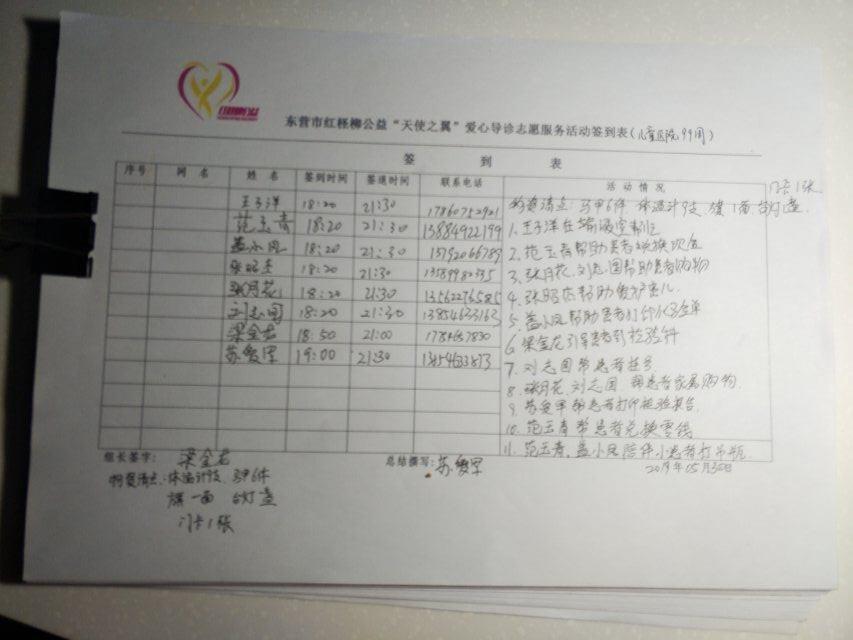 东营市红柽柳公益“天使之翼”爱心导诊志愿服务活动签到表(儿童医院99周)
签 到 表
门卡1张
序号 网名 姓名 签到时间 签退时间 联系电话 活动情况
物资清点:马甲6件 体温计7支 旗1面 台灯1盏
王子洋 18:20 21:30 17860752921
1.王子洋在输液室帮忙
范玉青 18:20 21:30 13884922199
2.范玉青帮助患者兑换现金
盖小凤 18:20 21:30 13792066789
3.张月花、刘志国帮助患者购物
张昭 18:20 21:30
4.张昭 帮助
张月花 18:20 21:30 13562276585
5.盖小凤帮助患者打印化验单
刘志国 18:20 21:30 13854633163
6.梁金龙引导患者到检验科
梁金龙 18:50 21:00 1784637830
7.刘志国带患者挂号
苏爱军 19:00 21:30
8.张月花、刘志国 帮患者家属购物
9.苏爱军帮患者打印检验报告
10.范玉青帮患者兑换零钱
11.范玉青、盖小凤陪伴小患者打吊瓶
组长签字: 梁金龙 总结撰写: 苏爱军 2019年05月30日
物资清点:体温计7支、马甲6件
旗一面 台灯1盏
门卡1张